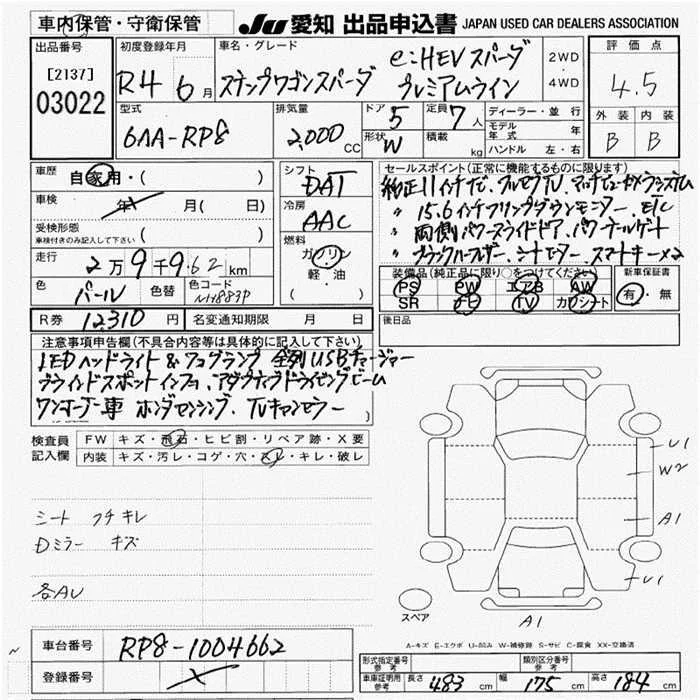 車内保管・守衛保管
JU 愛知 出品申込書 JAPAN USED CAR DEALERS ASSOCIATION
出品番号
[2137]
03022
初度登録年月
R4 6月
車名・グレード
e:HEVスパーダ
ステップワゴンスパーダ プレミアムライン
2WD
4WD
評価点
4.5
外装 内装
B B
型式
6AA-RP8
排気量
2,000 CC
ドア
5
形状
W
定員
7人
積載
kg
ディーラー・並行
モデル年式 年
ハンドル 左・右
車歴
自家用・( )
車検
年 月( 日)
受検形態
車検付きのみ記入して下さい ( )
走行
2万9千962km
色
パール
色替
色コード
NH883P
シフト
DAT
冷房
AAC
燃料
ガソリン
軽・油
( )
セールスポイント(正常に機能するものに限ります)
純正11インチナビ、フルセグTV、マルチビューカメラシステム
〃 15.6インチフリップダウンモニター、ETC
〃 両側パワースライドドア、パワーテールゲート
〃 ブラックハーフレザー、シートヒーター、スマートキー×2
装備品(純正品に限り○をつけてください)
PS PW エアB AW
SR ナビ TV カワシート
新車保証書
有・無
R券 12,310 円
名変通知期限 月 日
後日品
注意事項申告欄(不具合内容等は具体的に記入して下さい)
LEDヘッドライト&フォグランプ 全列USBチャージャー
ブラインドスポットインフォ、アダプティブドライビングビーム
ワンオーナー車 ホンダセンシング、TVキャンセラー
検査員記入欄
FW キズ・飛石・ヒビ割・リペア跡・X要
内装 キズ・汚レ・コゲ・穴・スレ・キレ・破レ
シート フチキレ
Dミラー キズ
各AU
U1
W2
A1
U1
A1
スペア
A-キズ E-エクボ U-凹み W-補修跡 S-サビ C-腐食 XX-交換済
車台番号 RP8-1004662
登録番号
形式指定番号 参考
類別区分番号 参考
車庫証明用 参考 長さ 483 cm 幅 175 cm 高さ 184 cm